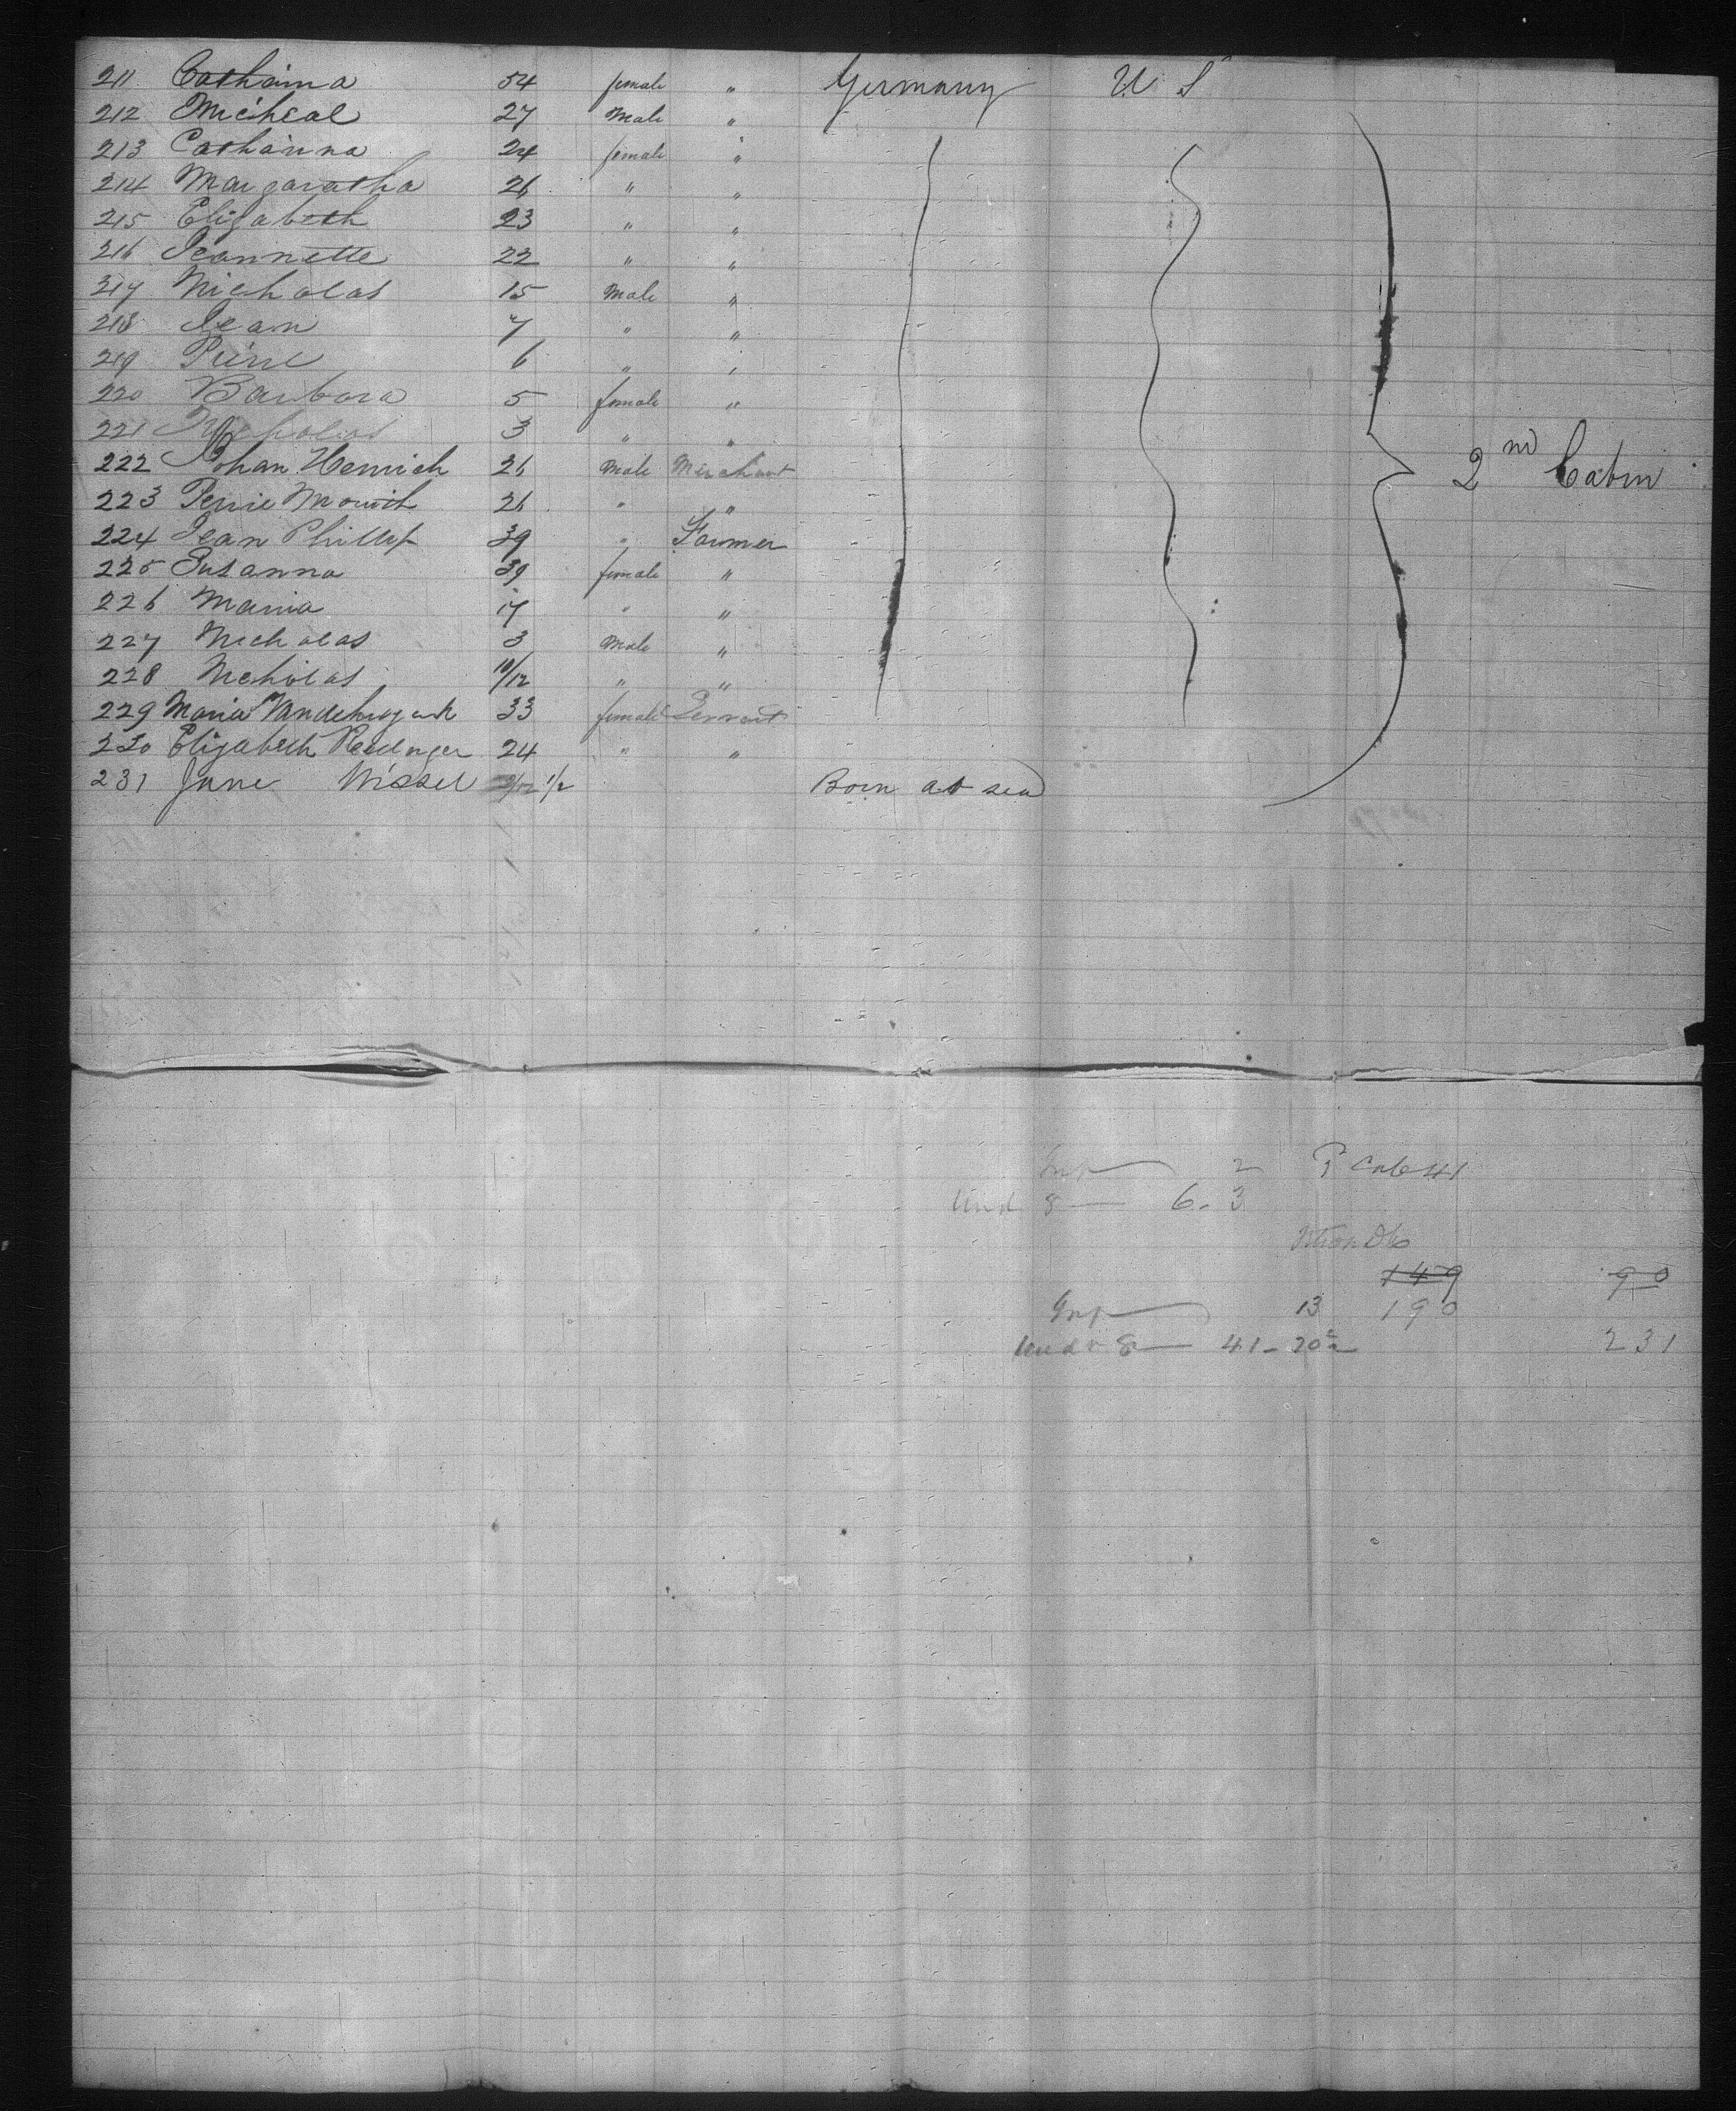 211 Catharina 54 female " Germany U S
212 Micheal 27 Male "
213 Catharina 24 female "
214 Margaratha 26 " "
215 Elizabeth 23 " "
216 Jeannette 22 " "
217 Nicholas 15 Male "
218 Jean 7 " "
219 Pierre 6 " "
220 Barbara 5 female "
221 Nicholas 3 " "
222 Johan Henrich 26 Male Merchant
2nd Cabin
223 26 " "
224 Jean Phillip 39 " Farmer
225 Susanna 39 female "
226 Maria 17 " "
227 Nicholas 3 Male "
228 Nicholas 10/12 " "
229 Maria 33 female Servant
230 Elizabeth 24 " "
231 June Wissel 1/2 Born at sea
Inf 2 Cab 41
Und 8 6-3
149 90
Inf 13 190
Under 8 41-20 231